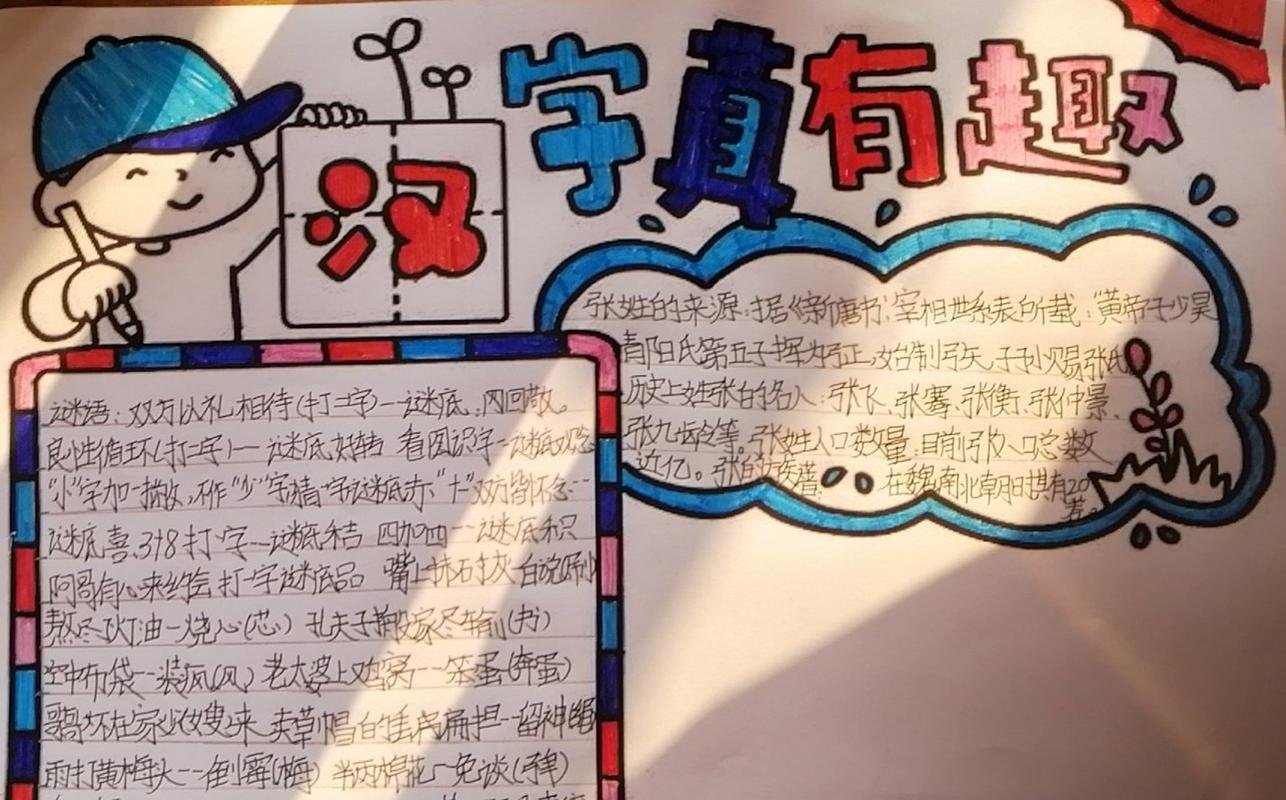 汉字真有趣
张姓的来源:据《新唐书》宰相世系表所载:"黄帝子少昊
青阳氏第五子挥为弓正,始制弓矢,子孙赐张氏
历史上姓张的名人:张飞、张骞、张衡、张仲景、
张九龄等。张姓人口数量:目前张人口总数
近亿。张的 在魏南北朝时期共有20
谜语:双方以礼相待(打二字)一谜底:冈回敬。
良性循环(打二字)一谜底好转 看图识字一谜底观念
"小"字加一 ,不作"少"字猜一字谜底亦"十"双方皆不念--
谜底喜、3+8打一字--谜底 四加四--谜底 积
阿哥有心来约会打一字谜底 嘴上抹石灰-白说
熬尽灯油一烧心(芯) 孔夫子搬家尽输(书)
空中布袋--装疯(风) 老太婆上鸡窝--笨蛋(奔蛋)
在家 嫂来 卖草帽的 扁担--留神绳
雨打黄梅头--倒霉(梅) 半两棉花一免谈(弹)